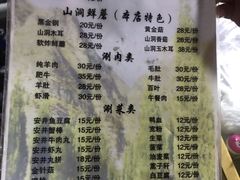 山洞鲜蘑（本店特色）
黑金钢 20元/份 黄金菇 28元/份
山洞木耳 18元/份 山洞香菇 28元/份
软炸鲜蘑 28元/份 山洞玉木耳 38元/份
涮肉类
纯羊肉 30元/份 毛肚 30元/份
肥牛 35元/份 牛肚 30元/份
羊肚 35元/份 百叶 28元/份
虾滑 35元/份 牛餐肉 15元/份
涮菜类
安井鱼豆腐 15元/份 鸭血 12元/份
安井蟹棒 15元/份 宽粉 12元/份
安井牛肉丸 15元/份 生菜 12元/份
安井虾丸 15元/份 菠菜 12元/份
安井丸拼 18元/份 油麦菜 12元/份
金针菇 15元/份 蒿子秆 12元/份
15元/份 白豆腐 12元/份